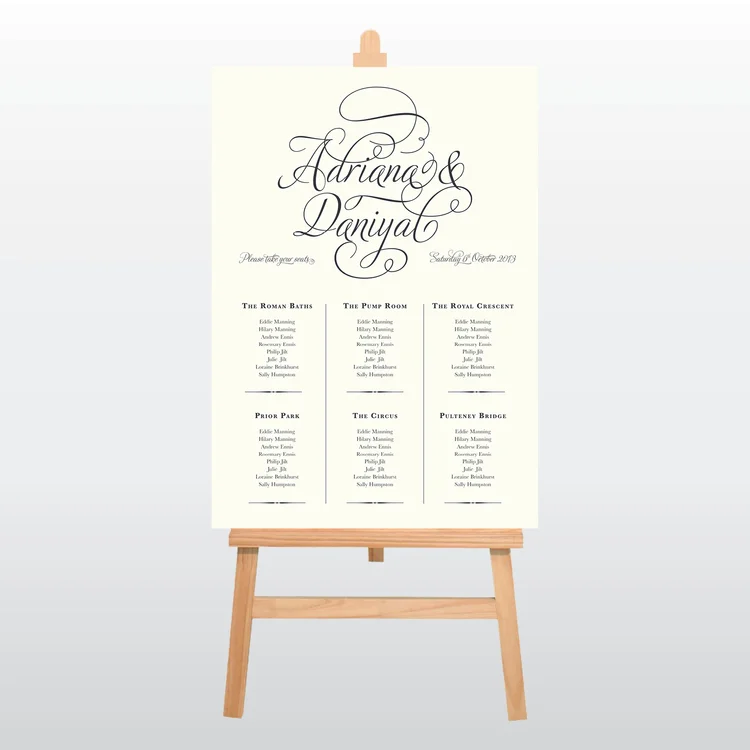 Adriana &
Daniyal
Please take your seats
Saturday October 2013
The Roman Baths
Eddie Manning
Hilary Manning
Andrew Ennis
Rosemary Ennis
Philip Jilt
Julie Jilt
Loraine Brinkhurst
Sally Hampston
The Pump Room
Eddie Manning
Hilary Manning
Andrew Ennis
Rosemary Ennis
Philip Jilt
Julie Jilt
Loraine Brinkhurst
Sally Hampston
The Royal Crescent
Eddie Manning
Hilary Manning
Andrew Ennis
Rosemary Ennis
Philip Jilt
Julie Jilt
Loraine Brinkhurst
Sally Hampston
Prior Park
Eddie Manning
Hilary Manning
Andrew Ennis
Rosemary Ennis
Philip Jilt
Julie Jilt
Loraine Brinkhurst
Sally Hampston
The Circus
Eddie Manning
Hilary Manning
Andrew Ennis
Rosemary Ennis
Philip Jilt
Julie Jilt
Loraine Brinkhurst
Sally Hampston
Pulteney Bridge
Eddie Manning
Hilary Manning
Andrew Ennis
Rosemary Ennis
Philip Jilt
Julie Jilt
Loraine Brinkhurst
Sally Hampston